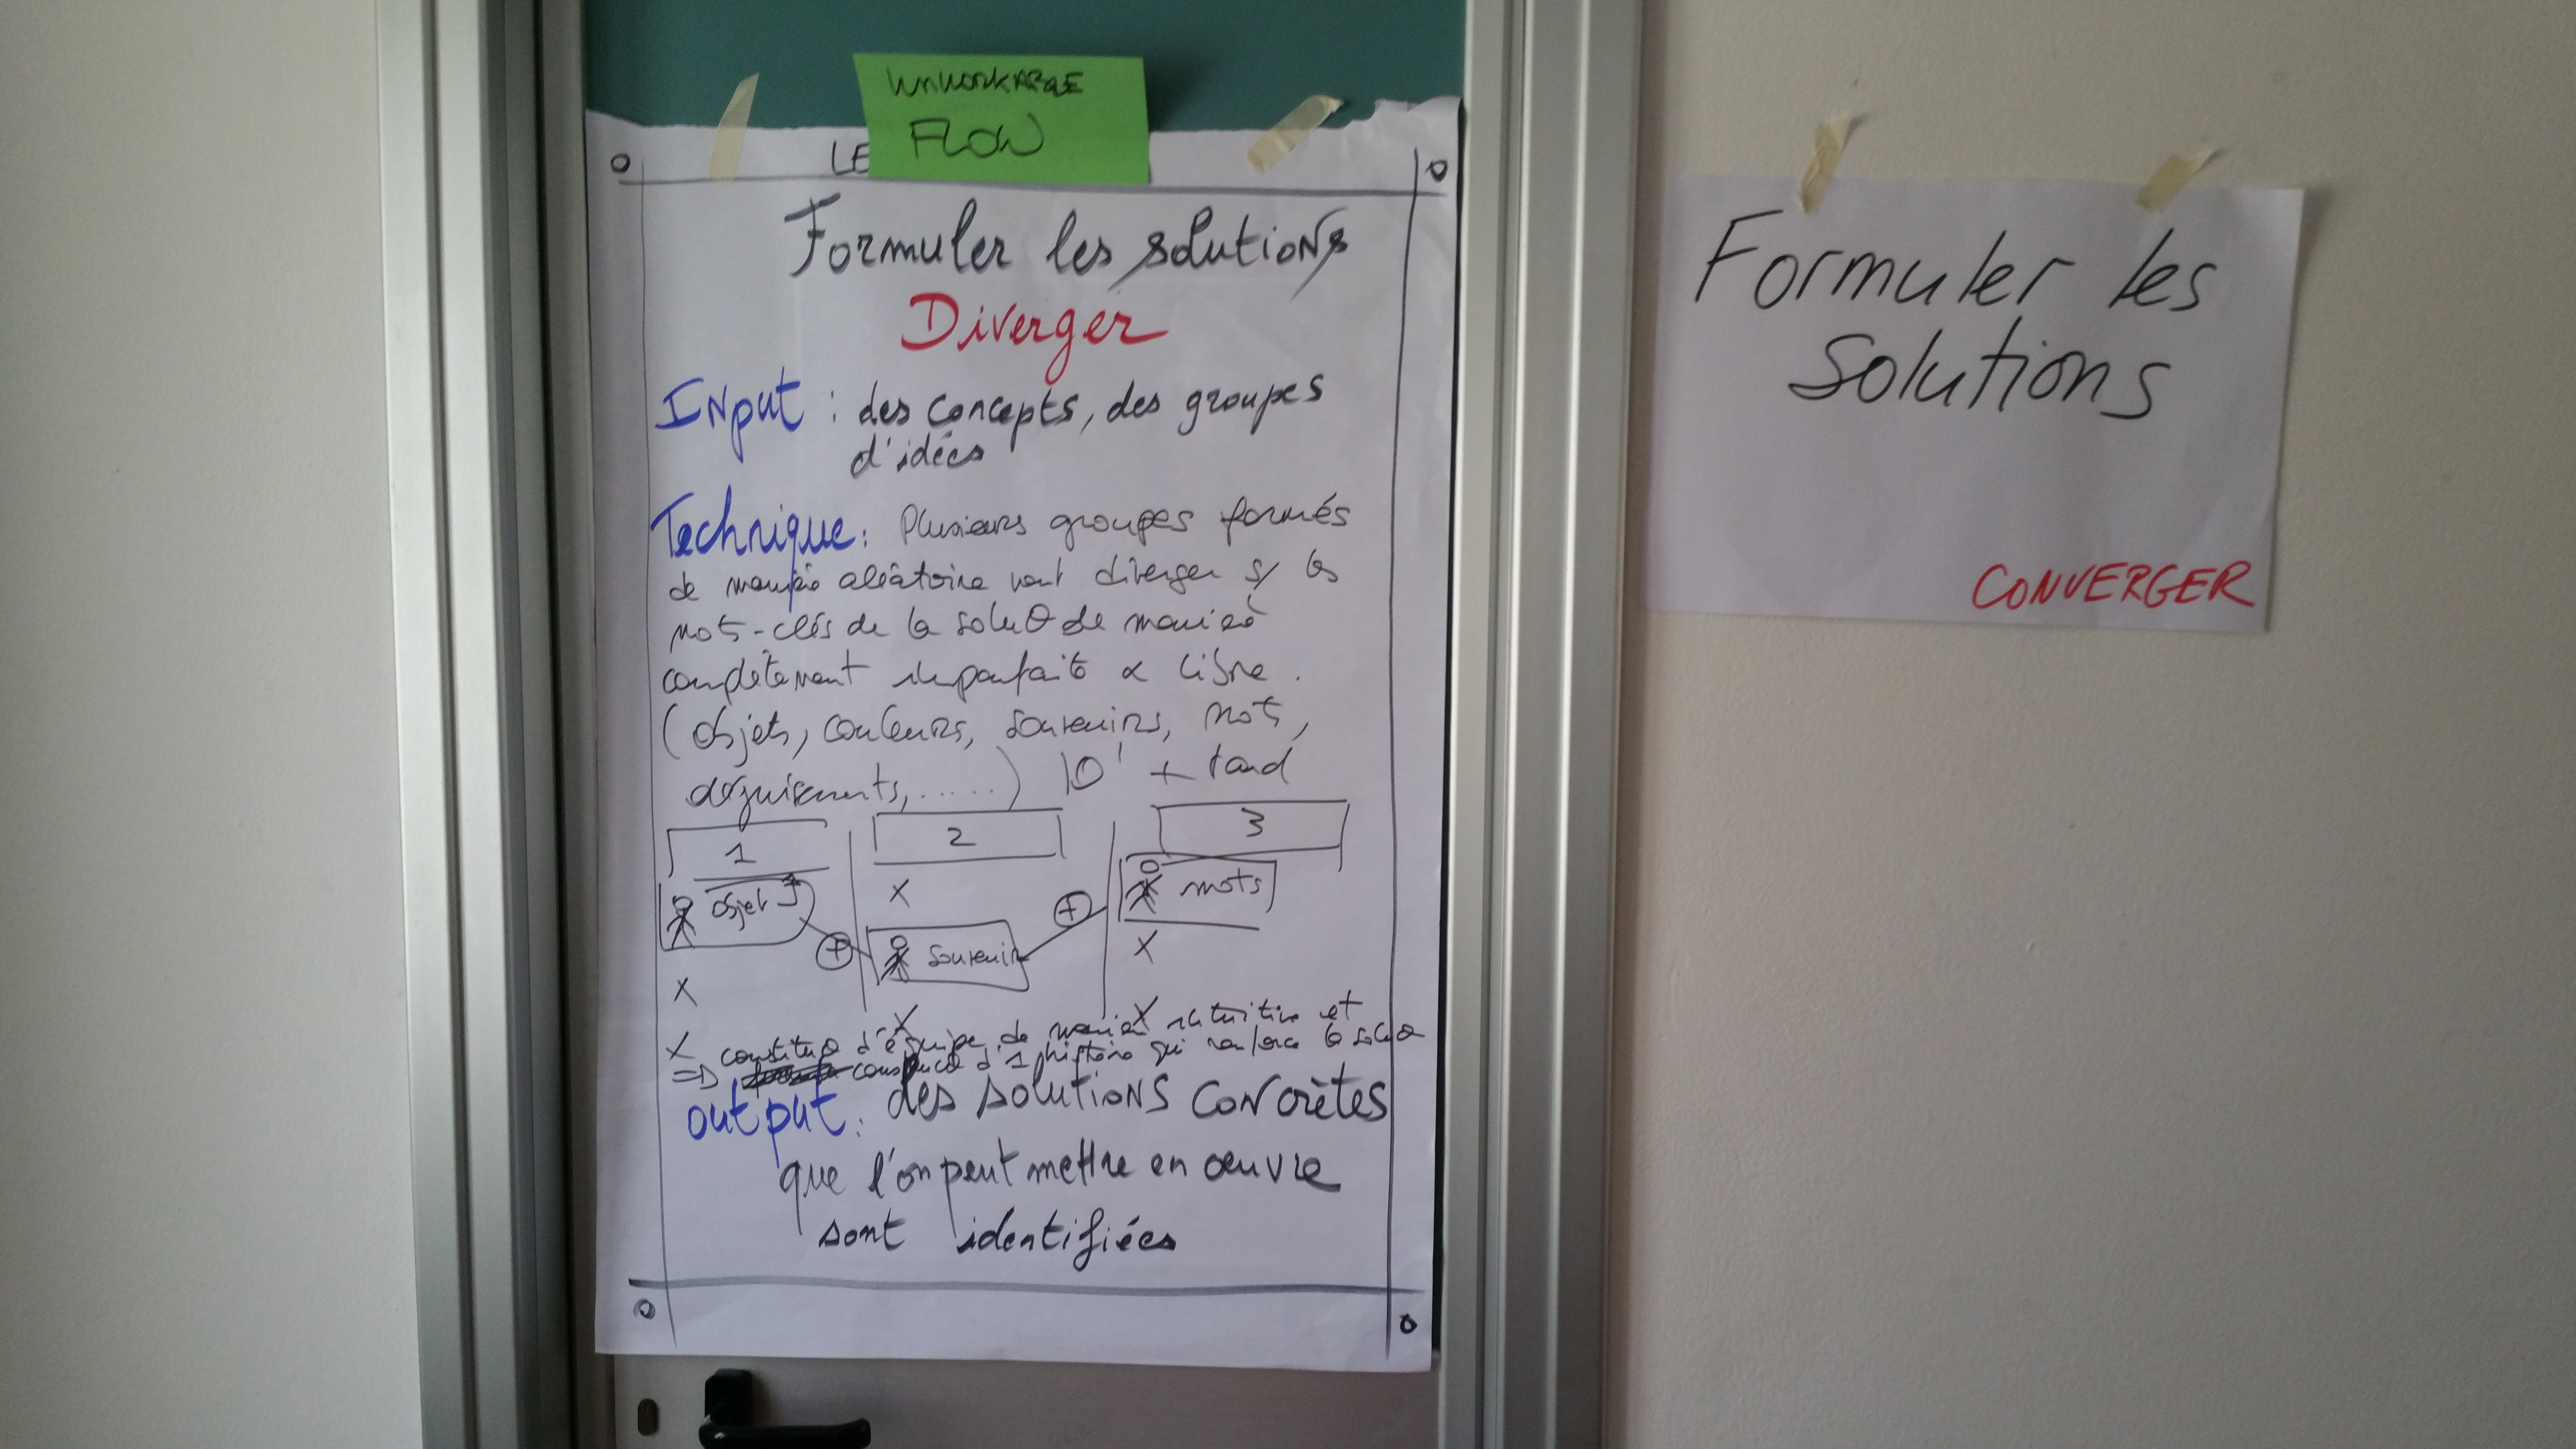 UNWORKABLE
FLOW
LE
Formuler les solutions
Diverger
Input : des concepts, des groupes
d'idées
Technique : Plusieurs groupes formés
de manière aléatoire vont diverger s/ les
mots-clés de la soluθ de manière
complètement imparfaite & libre.
(objets, couleurs, souvenirs, mots,
déguisements, ......) 10' + tard
1 2 3
objet X mots
souvenir X
X
X X
X constituθ d'équipe de manière intuitive et
=> construcθ d'1 histoire qui renforce la soluθ
output : des solutions concrètes
que l'on peut mettre en œuvre
sont identifiées
Formuler les
solutions
CONVERGER